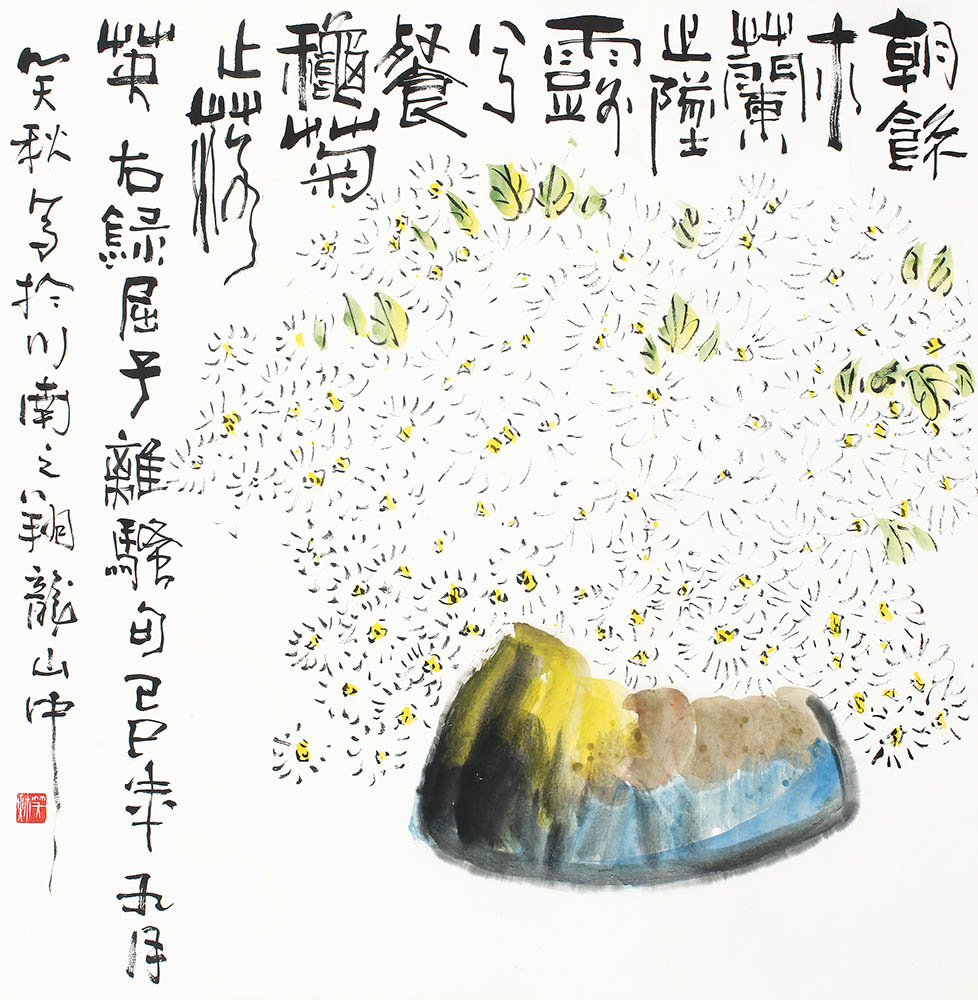 朝飲
木
蘭
之墜
露
兮
餐
龝菊
之落
英 右綠屈子離騷句己巳年五月
笑秋寫於川南之翔龍山中
笑秋